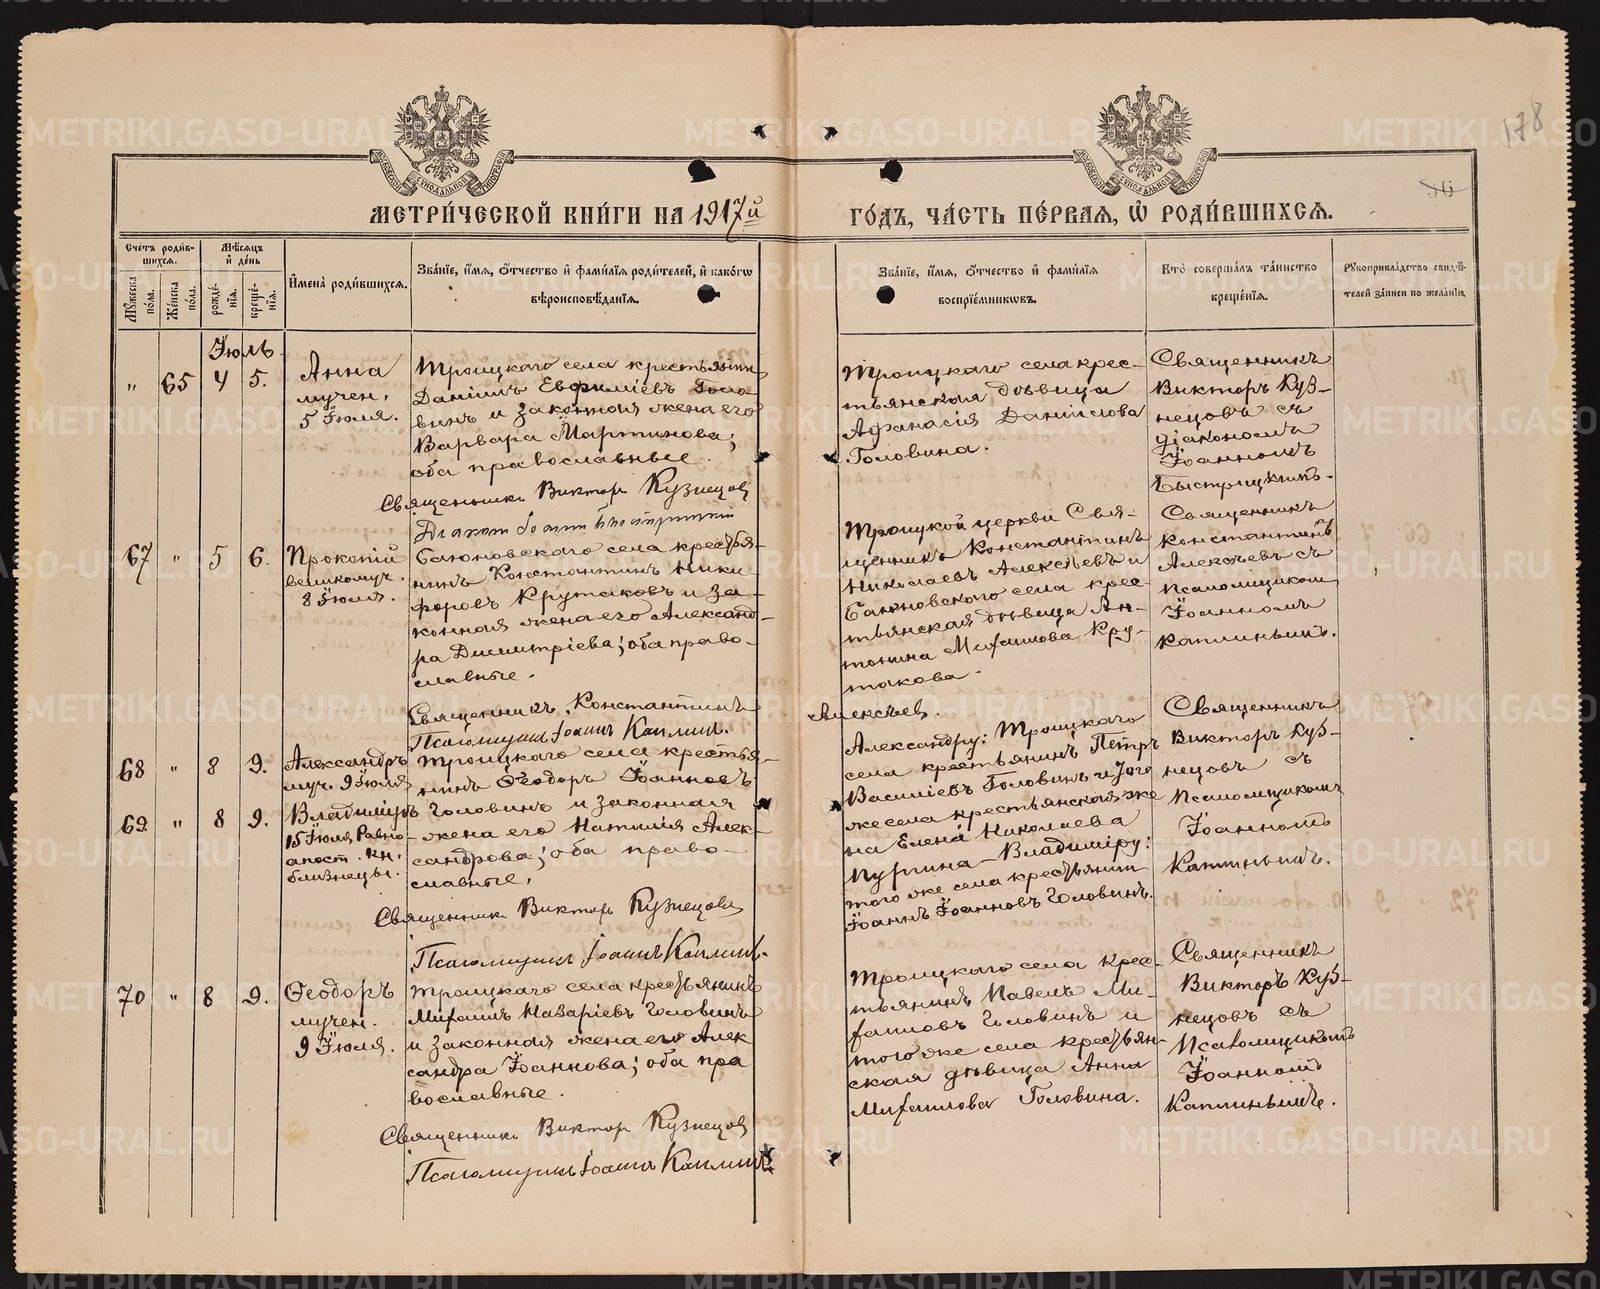 178
МЕТРИ́ЧЕСКОЙ КНИ́ГИ НА 1917й
ГО́ДЪ, ЧА́СТЬ ПЕ́РВАЯ, Ѡ҆ РОДИ́ВШИХСЯ.
Счетъ роди́вшихся.
Му́жеска по́ла.
Же́нска по́ла.
Мѣ́сяцъ и҆ де́нь
рожде́нія.
креще́нія.
И҆мена̀ роди́вшихся.
Зва́ніе, и҆́мя, о҆́тчество и҆ фами́лія роди́телей, и҆ како́гѡ
вѣроисповѣ́данія.
Зва́ніе, и҆́мя, о҆́тчество и҆ фами́лія
воспріе́мниковъ.
Кто̀ соверша́лъ та́инство
креще́нія.
Рукоприкла́дство свидѣ́-
телей за́писи по жела́нію.
Іюль
" 65 4 5.
Анна
мучен.
5 Іюля.
Троицкаго села крестьянин
Даніилъ Евфиміевъ Голо-
винъ и законная жена его
Варвара Мартинова;
оба православные.
Священникъ Виктор Кузнецов
Троицкаго села крес-
тьянская дѣвица
Афанасія Даніилова
Головина.
Священникъ
Викторъ Куз-
нецовъ съ
діакономъ
Іоанномъ
Быстрицкимъ.
67 " 5 6.
Прокопій
великомуч.
8 Іюля.
села крестья-
нинъ Константинъ Ники-
форовъ Крутаковъ и за-
конная жена его Александ-
ра Димитріева; оба право-
славные.
Священникъ Константинъ
Алексѣев.
Псаломщикъ Іоаннъ Каплин.
Троицкой церкви Свя-
щенникъ Константинъ
Николаевъ Алексѣевъ и
села крес-
тьянская дѣвица Ан-
тонина Михаилова Кру-
такова.
Священникъ
Константинъ
Алексѣевъ съ
Псаломщиком
Іоанномъ
Каплинымъ.
68 " 8 9.
Александръ
муч. 9 Іюля
69 " 8 9.
Владиміръ
15 Іюля Равно-
апост. кн.
близнецы.
Троицкаго села крестья-
нинъ Ѳеодоръ Іоанновъ
Головинъ и законная
жена его Наталія Алек-
сандрова; оба право-
славные.
Священникъ Виктор Кузнецовъ
Псаломщикъ Іоаннъ Каплинъ.
Александру: Троицкаго
села крестьянинъ Петръ
Василіевъ Головинъ и того
же села крестьянская же
на Елена Николаева
Владиміру:
того же села крестьянин
Іоаннъ Іоанновъ Головинъ.
Священникъ
Викторъ Куз-
нецовъ съ
Псаломщикомъ
Іоанномъ
Каплинымъ.
70 " 8 9.
Ѳеодоръ
мучен.
9 Іюля.
Троицкаго села крестьянинъ
Михаилъ Назаріевъ Головинъ
и законная жена его Алек
сандра Іоаннова; оба пра
вославные.
Священникъ Виктор Кузнецов
Псаломщикъ Іоаннъ Каплинъ
Троицкаго села крес-
тьянинъ Павелъ Ми-
хаиловъ Головинъ и
того же села крестьян-
ская дѣвица Анна
Михаилова Головина.
Священникъ
Викторъ Куз-
нецовъ съ
Псаломщикомъ
Іоанномъ
Каплинымъ.
METRIKI.GASO-URAL.RU